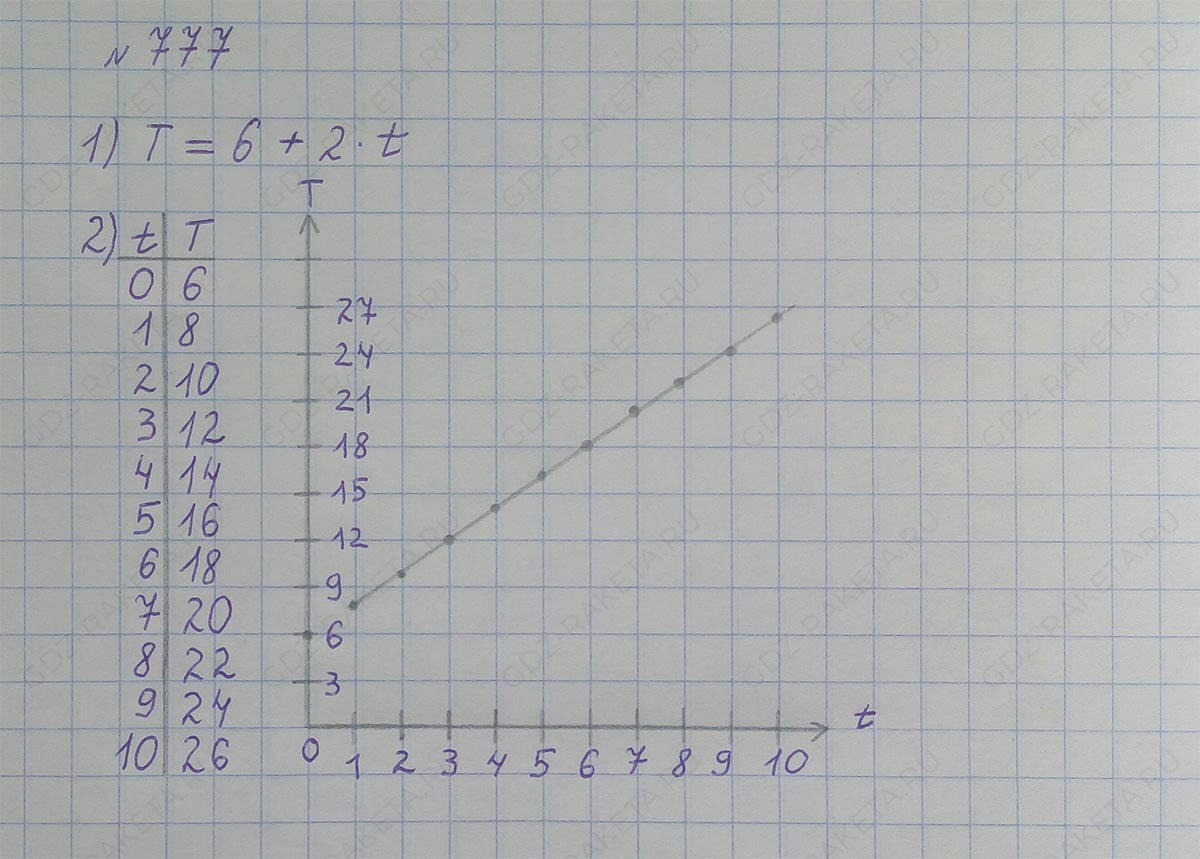 № 777
1) T = 6 + 2 · t
2) t T
0 6
1 8
2 10
3 12
4 14
5 16
6 18
7 20
8 22
9 24
10 26
T
27
24
21
18
15
12
9
6
3
0 1 2 3 4 5 6 7 8 9 10
t
GDZ-RAKETA.RU